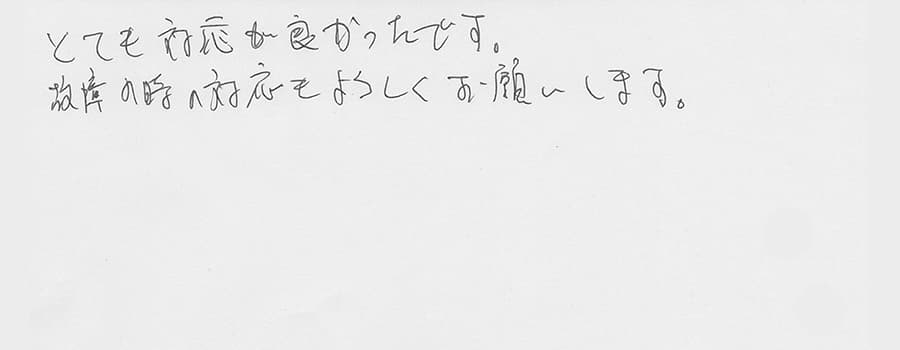 とても対応が良かったです。
故障の時の対応もよろしくお願いします。